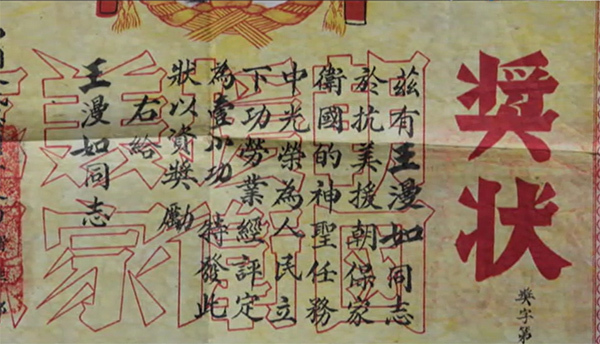 奨状
奬字第
茲有王漫如同志
於抗美援朝保家
衛國的神聖任務
中光榮為人民立
下功勞業經評定
為壹小功特發此
狀以資奬勵
右給
王漫如同志